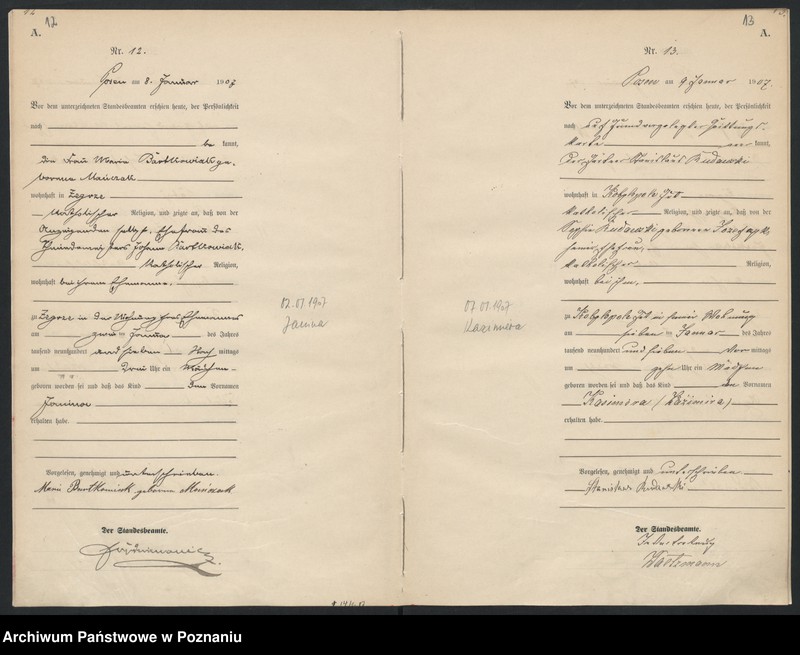 12
A.
Nr. 12.
Posen am 8. Januar 1907
Vor dem unterzeichneten Standesbeamten erschien heute, der Persönlichkeit
nach
be kannt,
die Frau Maria Bartkowiak ge-
borene
wohnhaft in Zegrze
katholischer Religion, und zeigte an, daß von der
Anzeigenden selbst, Ehefrau des
Johann Bartkowiak,
katholischer Religion,
wohnhaft bei ihrem Ehemanne,
zu Zegrze in der Wohnung ihres Ehemannes
am zwei ten Januar des Jahres
tausend neunhundert und sieben Nach mittags
um drei Uhr ein Mädchen
geboren worden sei und daß das Kind den Vornamen
Janina
erhalten habe.
Vorgelesen, genehmigt und unterschrieben
Maria Bartkowiak geborene
Der Standesbeamte.
02.01.1907
Janina
13
A.
Nr. 13.
Posen am 9 Januar 1907.
Vor dem unterzeichneten Standesbeamten erschien heute, der Persönlichkeit
nach auf Grund vorgelegter Quittungs-
karte kannt,
der Stanislaus Rudawski
wohnhaft in Kobylepole
katholischer Religion, und zeigte an, daß von der
Sophie Rudawski geborenen
seiner Ehefrau,
katholischer Religion,
wohnhaft bei ihm,
zu Kobylepole in seiner Wohnung
am sieben ten Januar des Jahres
tausend neunhundert und sieben Vor mittags
um zehn Uhr ein Mädchen
geboren worden sei und daß das Kind den Vornamen
Kasimira (Kazimira)
erhalten habe.
Vorgelesen, genehmigt und unterschrieben
Stanislaus Rudawski
Der Standesbeamte.
In Vertretung
07.01.1907
Kazimiera
Archiwum Państwowe w Poznaniu